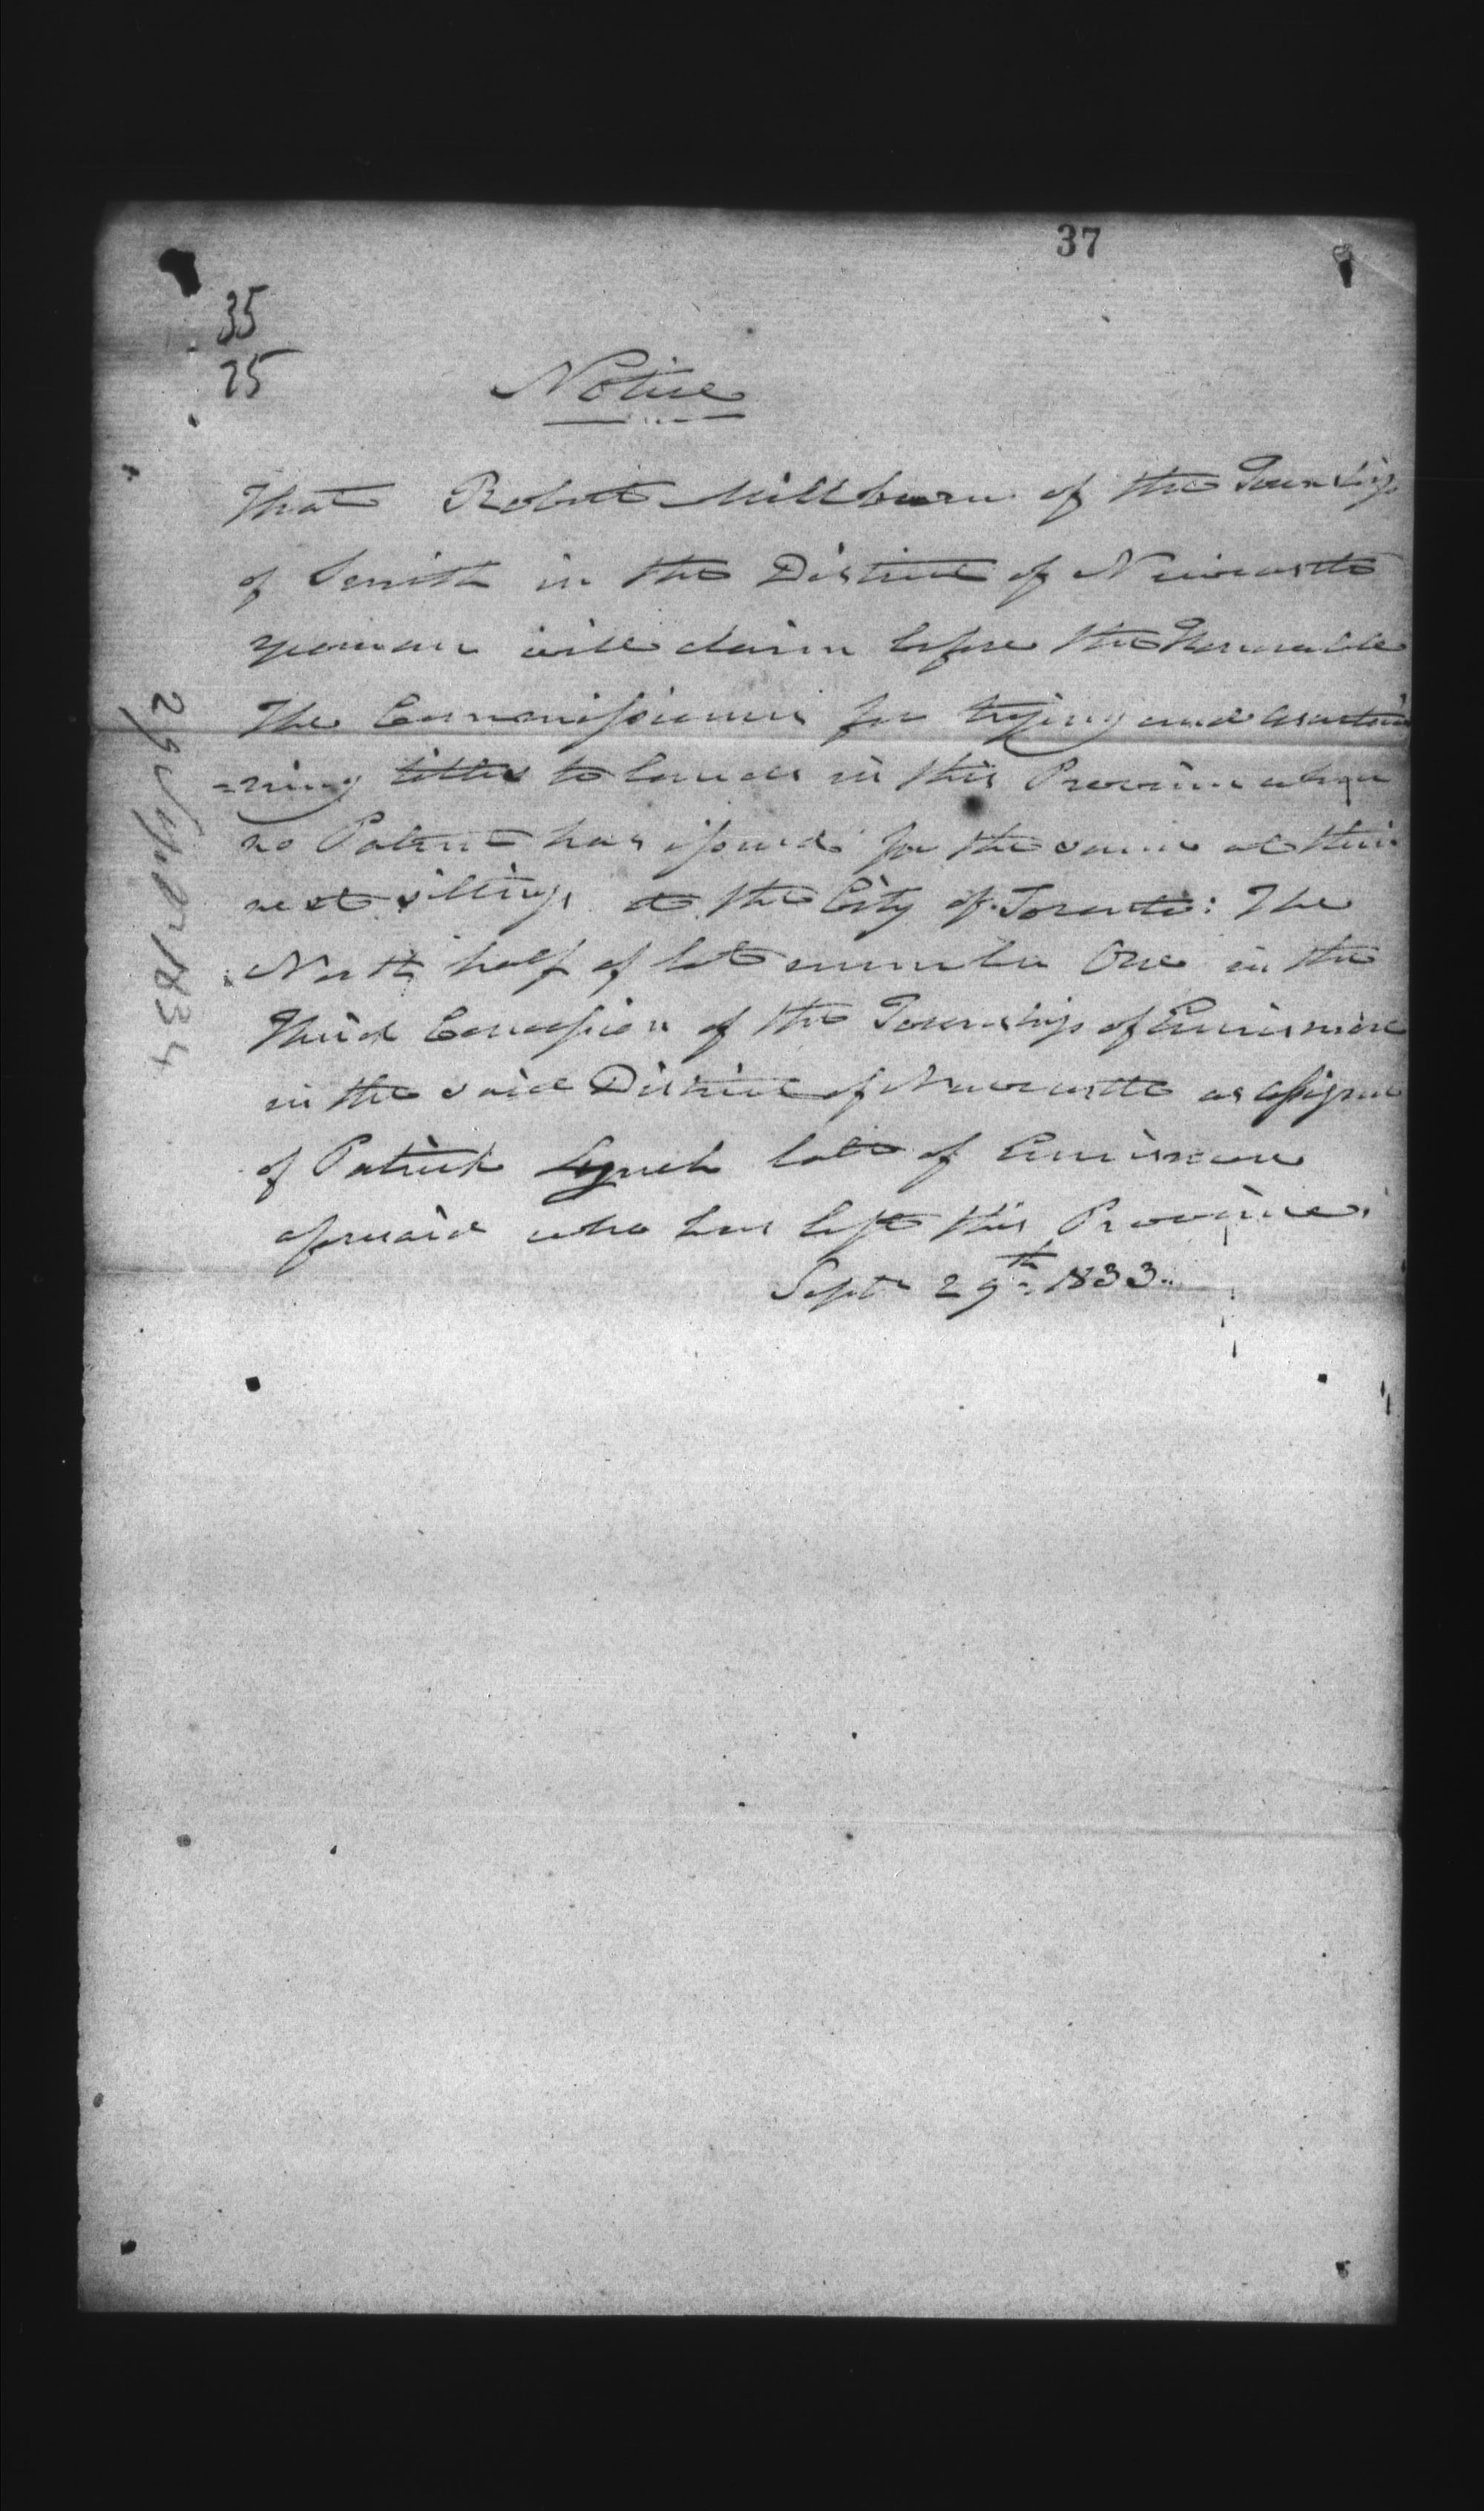 37
35
75
Notice
That Robert Millburn of the Township
of Smith in the District of Newcastle
yeoman will claim before the Honorable
The Commissioners for trying and ascertain
=ning titles to lands in this Province where
no Patent has issued for the same at their
next sitting at the City of Toronto: The
North half of lot number One in the
Third Concession of the Township of Ennismore
in the said District of Newcastle as assignee
of Patrick Lynch late of Ennismore
aforesaid who has left this Province.
Sept 29th 1833.
29 Septr 1834